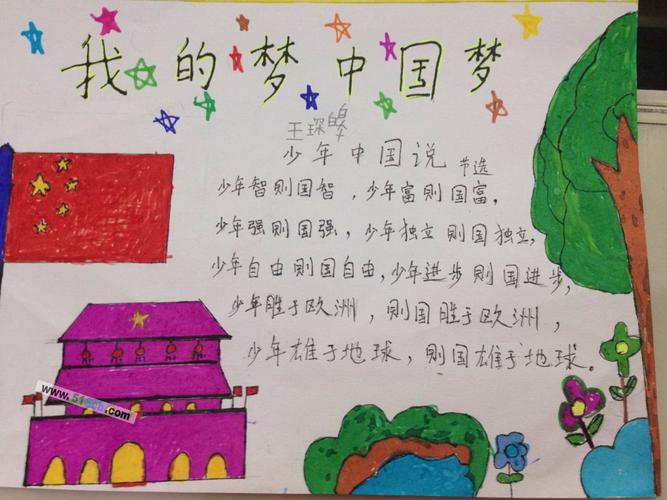 我的梦中国梦
王琛皞
少年中国说 节选
少年智则国智，少年富则国富，
少年强则国强，少年独立则国独立，
少年自由则国自由，少年进步则国进步，
少年胜于欧洲，则国胜于欧洲，
少年雄于地球，则国雄于地球。